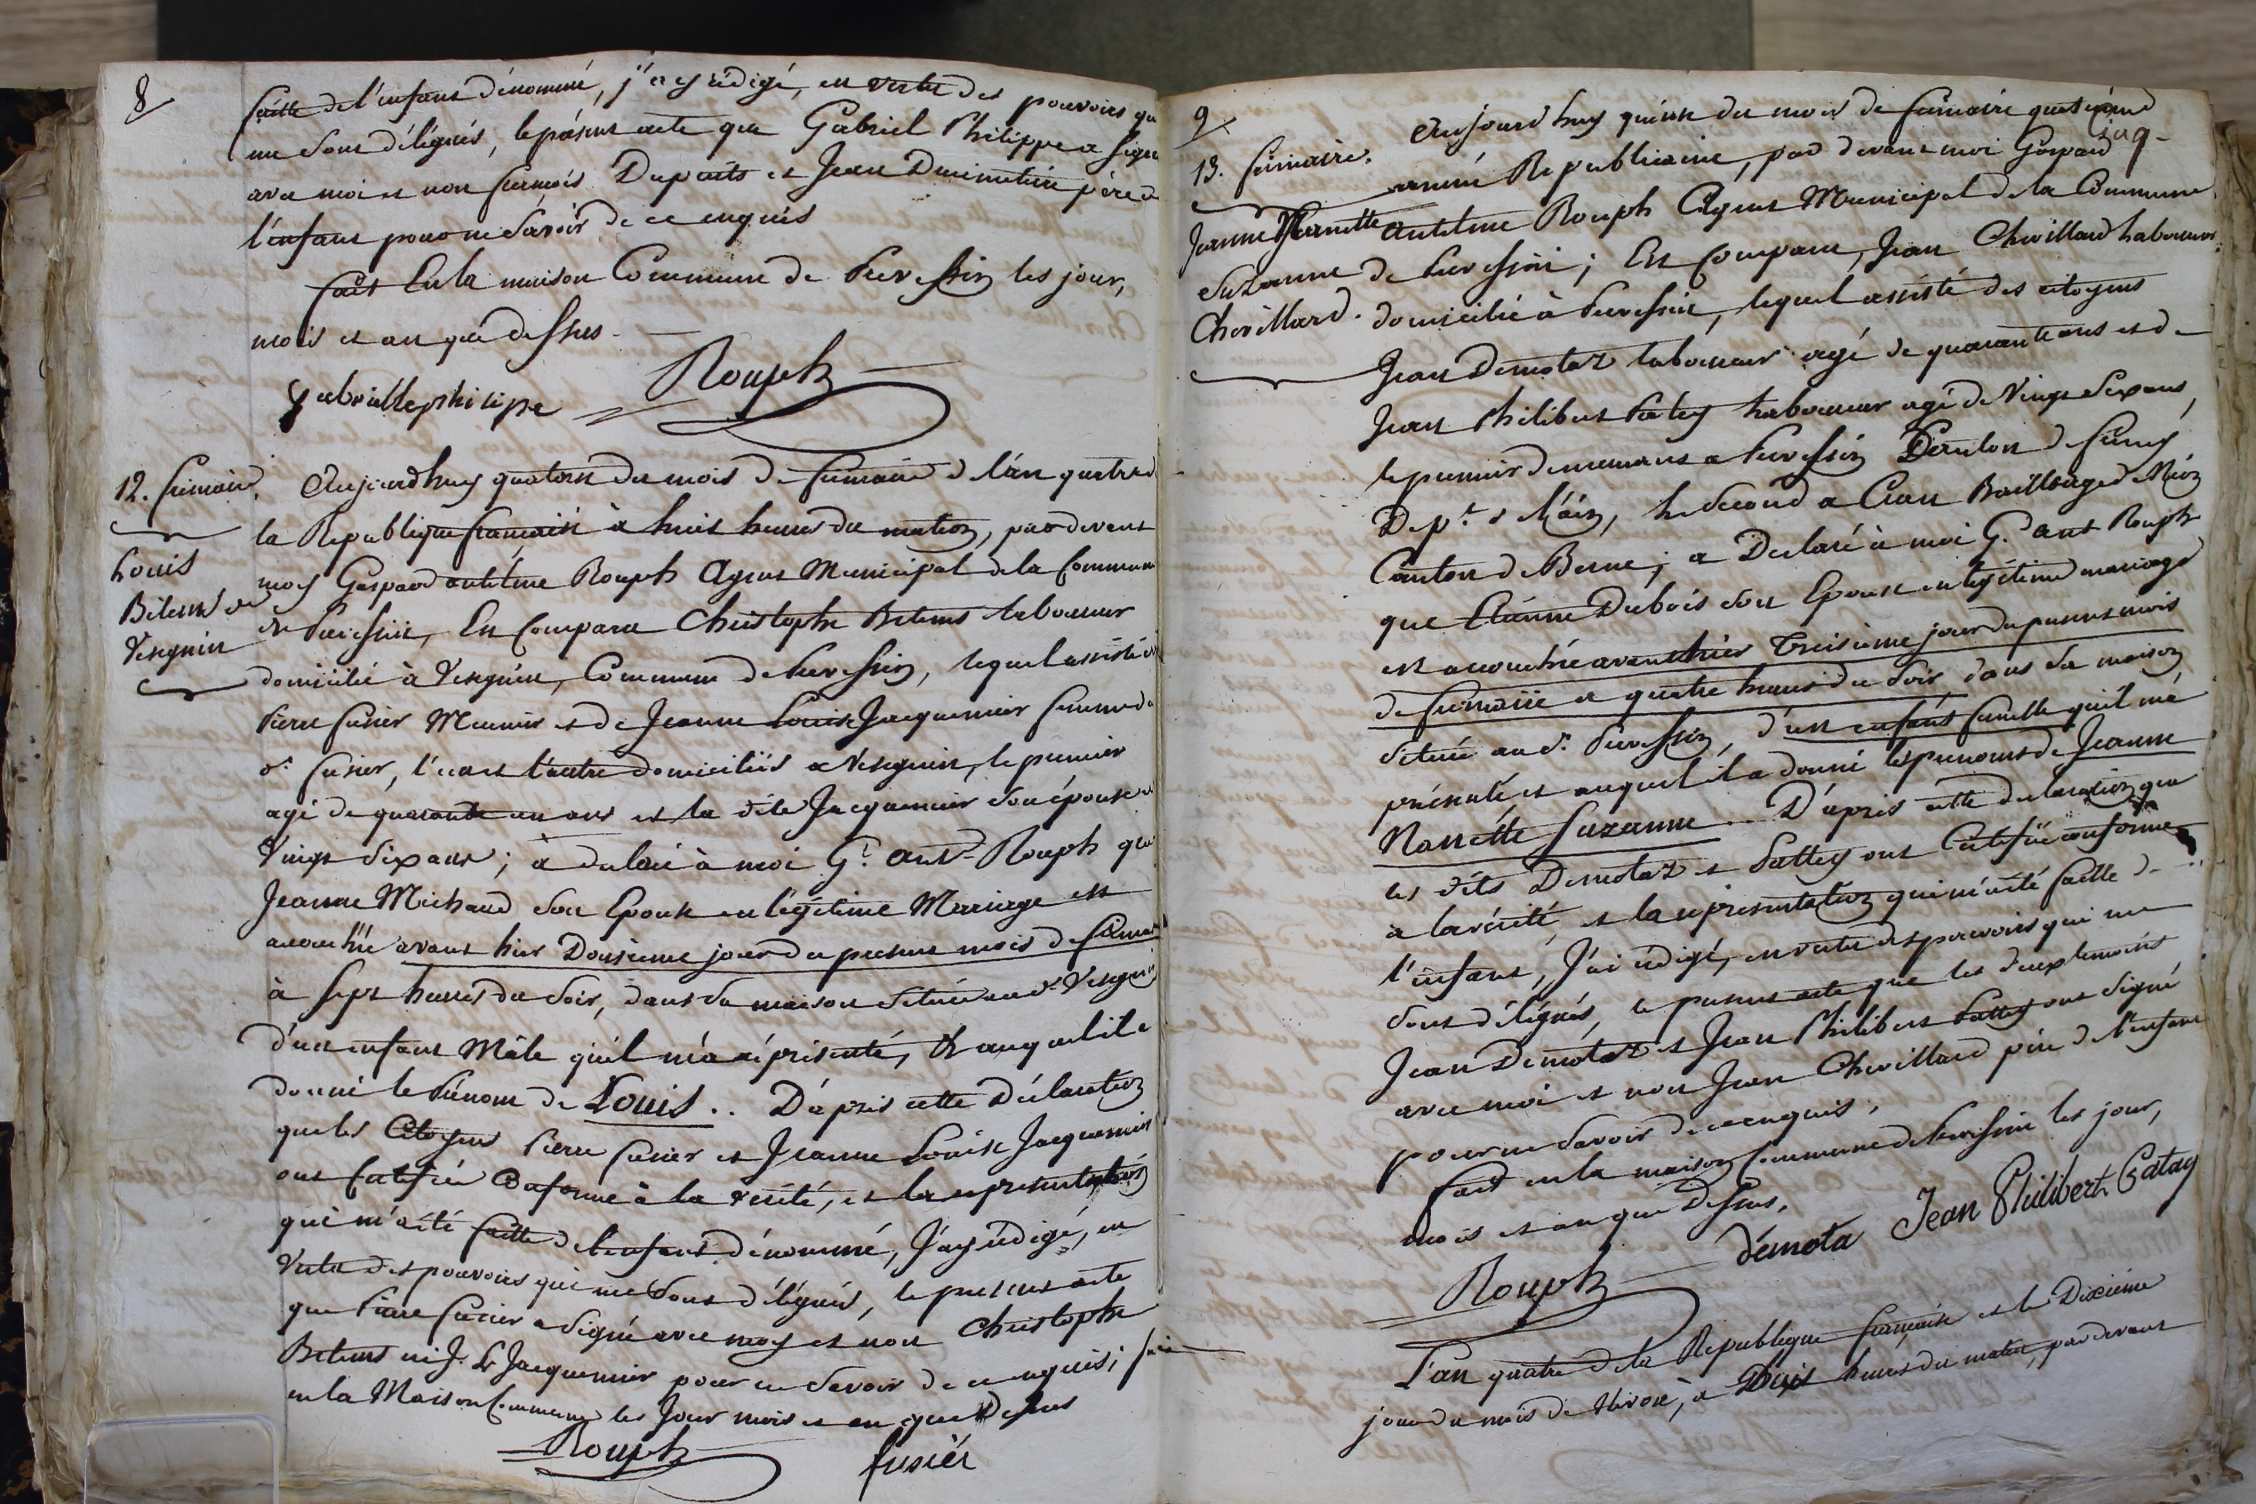 8
faitte de l'enfant dénommé, j'ay rédigé, en vertu des pouvoirs qui
me sont délégués, le présent acte que Gabriel Philippe a signé
avec moi et non François Dupuits et Jean Duimetiere père de
l'enfant pour ne savoir de ce enquis
fait En la maison Commune de Prevessin les jour,
mois et an que dessus
Rouph
gabriellephilipe
12. frimaire.
Louis
Betems de
Vesegnin
Aujourdhuy quatorze du mois de frimaire de l'an quatre de
la Republique francaise à huit heures du matin, par devant
moy Gaspard antelme Rouph Agent Municipal de la Commune
de Prevessin, Est Comparu Christophe Betems laboureur
domicilié à Vesegnin, Commune de Prevessin, lequel assisté de
Pierre fusier Meunier et de Jeanne Louise Jacquemier femme du
dt. fusier, l'un et l'autre domiciliés a Vesegnin, le premier
agé de quarante un ans et la dite Jacquemier son épouse de
Vingt six ans; a declaré à moi G. ant. Rouph que
Jeanne Michaud son Epouse en légitime Mariage est
accouchée avant hier Douzieme jour du present mois de frimaire
à sept heures du soir, dans sa maison située au dt. Vesegnin
d'un enfant Mâle qu'il m'a présenté, et auquel il a
donné le Prénom de Louis.. D'après cette Déclaration
que les Citoyens Pierre fusier et Jeanne Louise Jacquemier
ont Certifiée Conforme à la verité, et la representation
qui m'a été faitte de l'enfant dénommé, J'ay rédigé, en
Vertu des pouvoirs qui me sont délégués, le present acte
que Pierre fusier a signé avec moy et non Christophe
Betems ni J. Le Jacquemier pour ne savoir de ce enquis; fait
en la Maison Commune les Jour mois et an que Dessus
Rouph
fusier
9
13. frimaire.
Jeanne Nanette
Suzanne
Chevillard.
Aujourd'huy quinze du mois de frimaire quatrieme
année Republicaine, par devant moi Gaspard
antelme Rouph Agent Municipal de la Commune
de Prevessin; Est Comparu, Jean Chevillard laboureur
domicilié à Prevessin, lequel assisté des citoyens
Jean Demotaz laboureur agé de quarante ans et de
Jean Philibert Patey laboureur agé de Vingt Six ans,
le premier demeurant a Prevessin Canton de ferney
Dept. de l'ain, le Second a Cran Bailliage de Nion
Canton de Berne; a Declaré à moi G. ant Rouph
que Etienne Dubois son Epouse en légitime mariage
est accouchée avant hier Treizieme jour du present mois
de frimaire a quatre heures du soir dans sa maison
située au dt. Prevessin, d'un enfant femelle qu'il m'a
présenté et auquel il a donné les prenoms de Jeanne
Nanette Suzanne. D'après cette declaration que
les dits Demotaz et Pattey ont Certifiée conforme
a la vérité, et la representation qui m'a été faitte de
l'enfant, J'ai rédigé, en vertu des pouvoirs qui me
sont délégués, le present acte que les deux temoins
Jean Demotaz et Jean Philibert Pattey ont signé
avec moi et non Jean Chevillard père de l'enfant
pour ne savoir de ce enquis.
fait en la maison Commune de Prevessin les jour,
mois et an que Dessus.
Rouph
démota
Jean Philibert Patay
L'an quatre de la Republique française et le Dixieme
jour du mois de Nivose, a Dix heures du matin, par devant